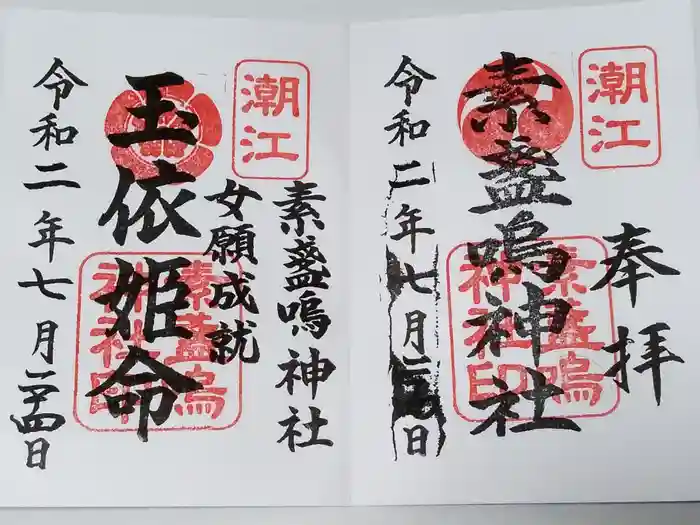 潮江
奉拝
素盞嗚神社
素盞嗚神社印
令和二年七月
日
潮江
素盞嗚神社
女願成就
玉依姫命
素盞嗚神社印
令和二年七月二十四日